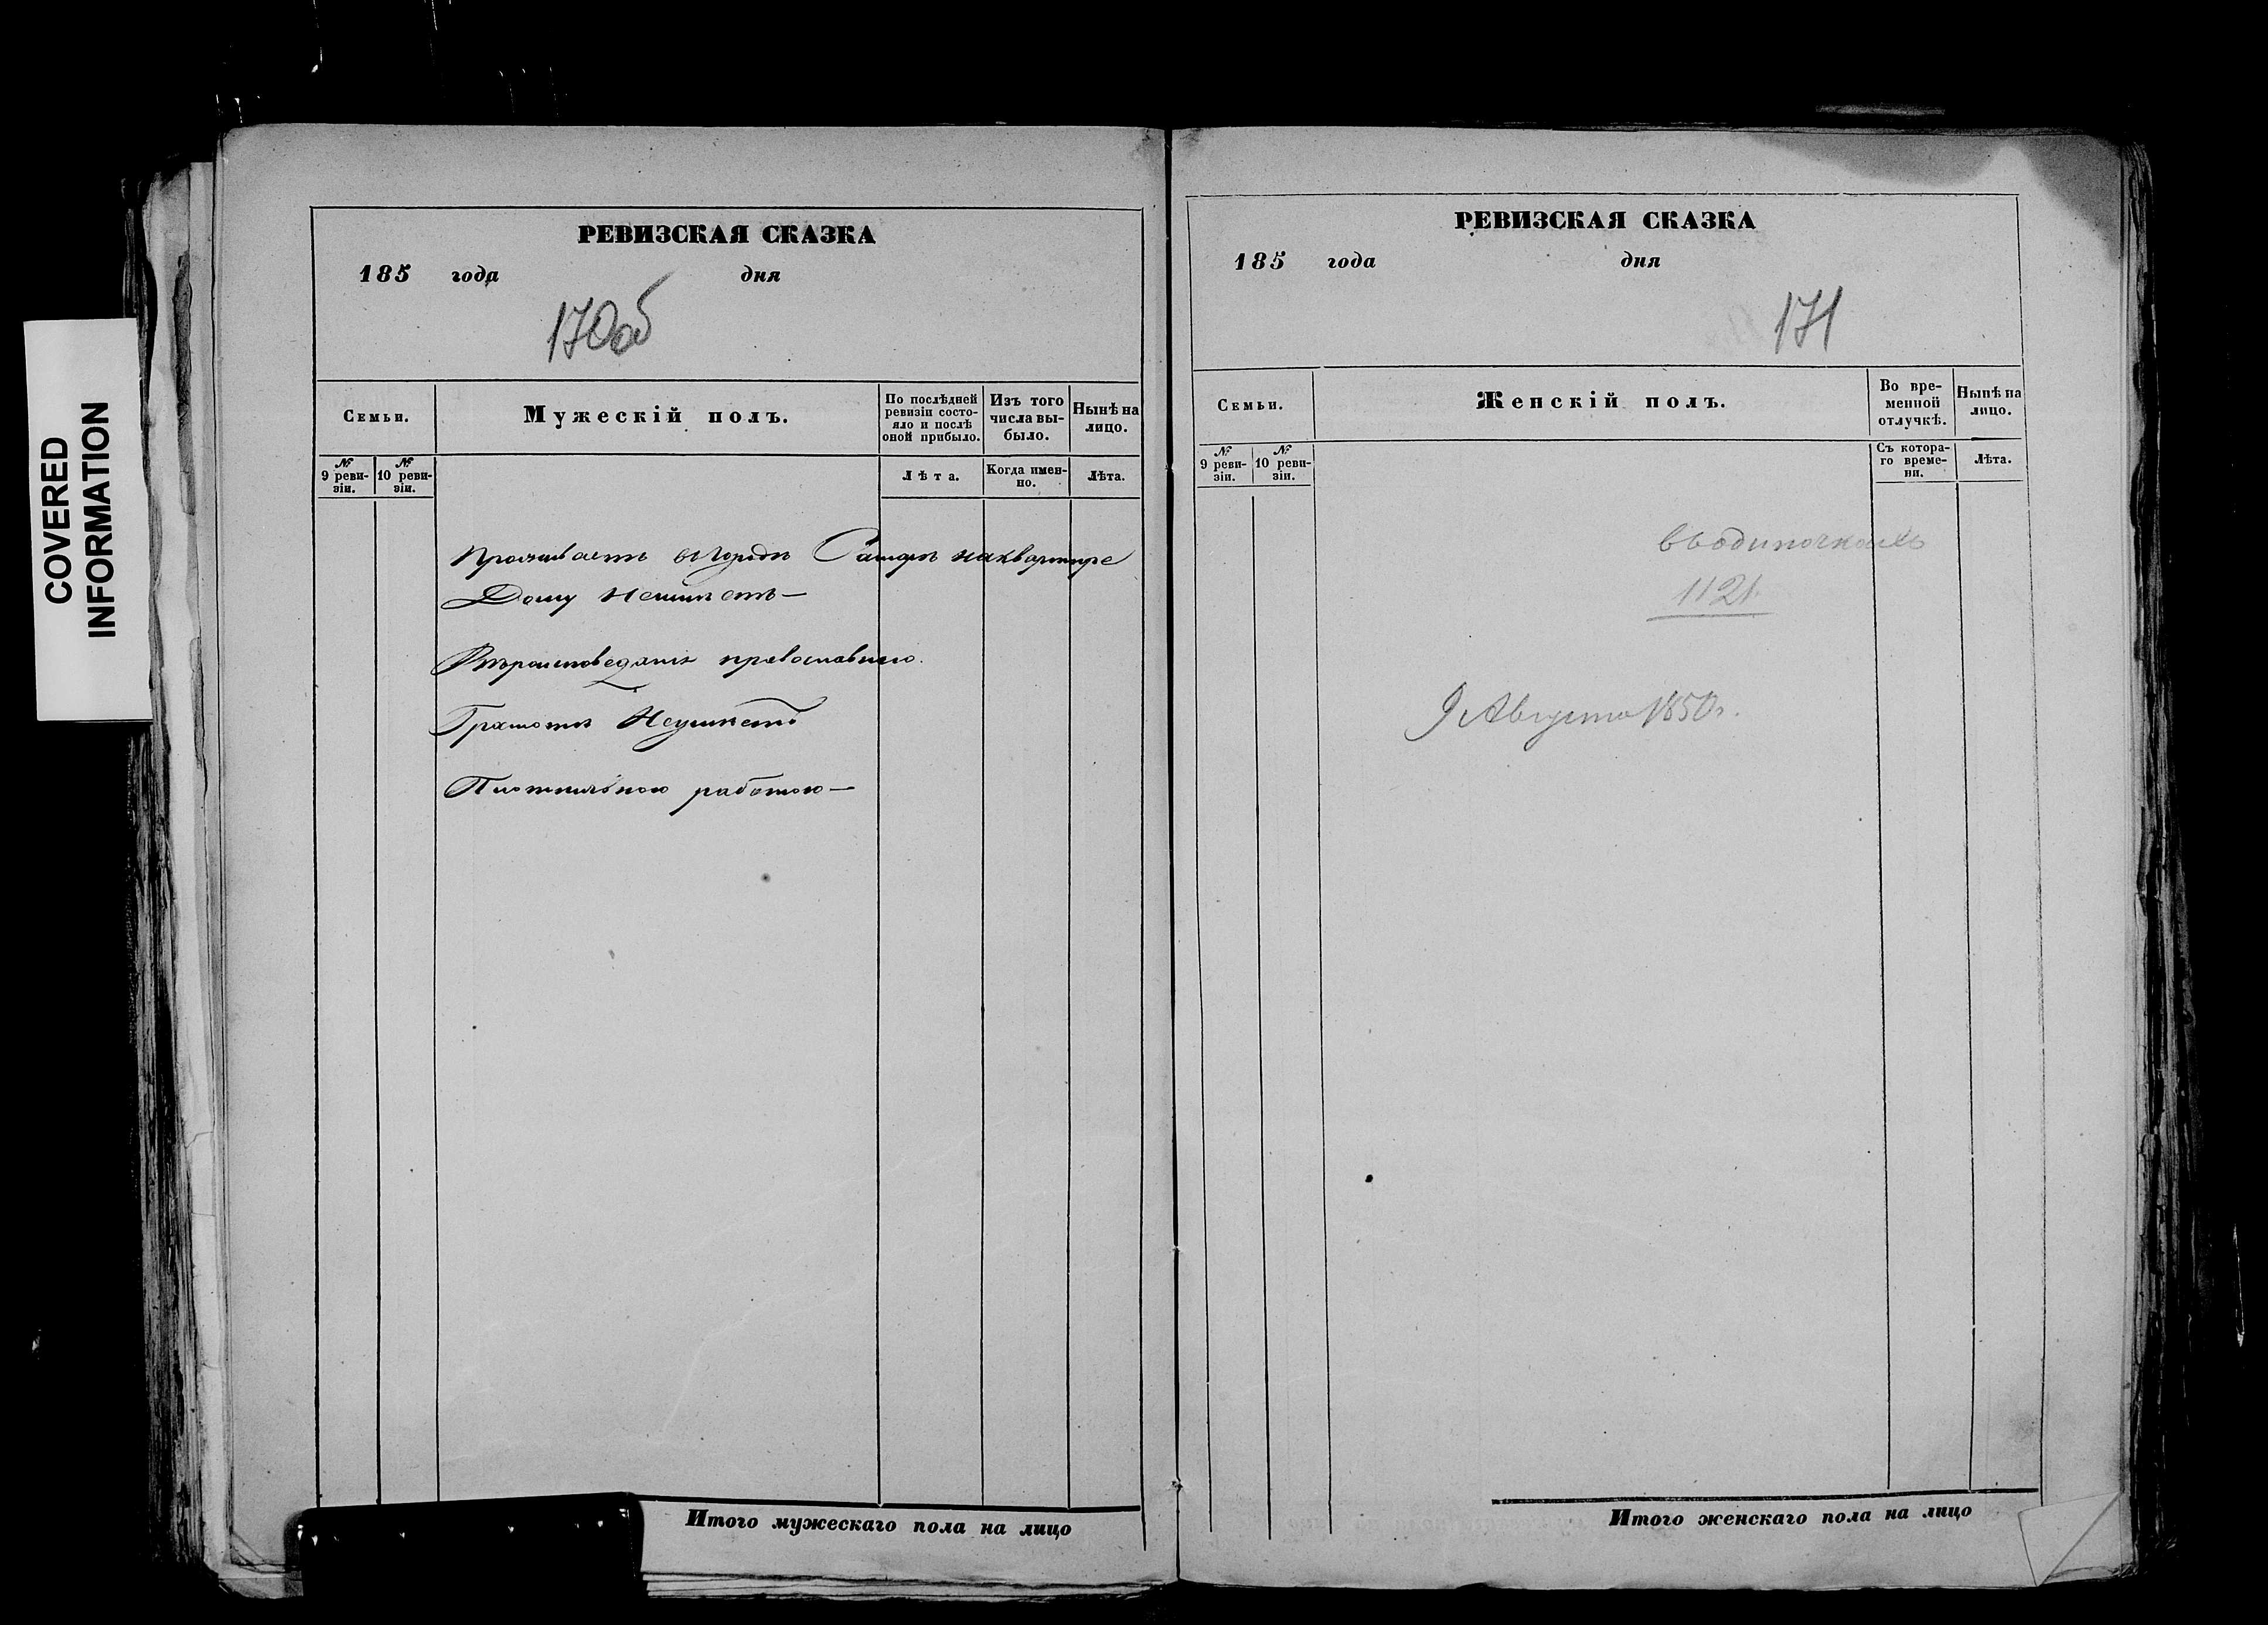 COVERED
INFORMATION
РЕВИЗСКАЯ СКАЗКА
185 года дня
170об
Семьи.
Мужескій полъ.
По послѣдней
ревизіи состо-
яло и послѣ
оной прибыло.
Изъ того
числа вы-
было.
Нынѣ на
лицо.
№
9 реви-
зіи.
№
10 реви-
зіи.
Лѣта.
Когда имен-
но.
Лѣта.
Проживаетъ въ городѣ Самарѣ на квартире
Дому Неимѣетъ —
Вѣроисповеданія православнаго.
Грамоты Неумѣетъ
Плотничною работою —
Итого мужескаго пола на лицо
РЕВИЗСКАЯ СКАЗКА
185 года дня
171
Семьи.
Женскій полъ.
Во вре-
менной
отлучкѣ.
Нынѣ на
лицо.
№
9 реви-
зіи.
№
10 реви-
зіи.
Съ котора-
го време-
ни.
Лѣта.
въ одиночкахъ
1121
9 Августа 1850 г.
Итого женскаго пола на лицо